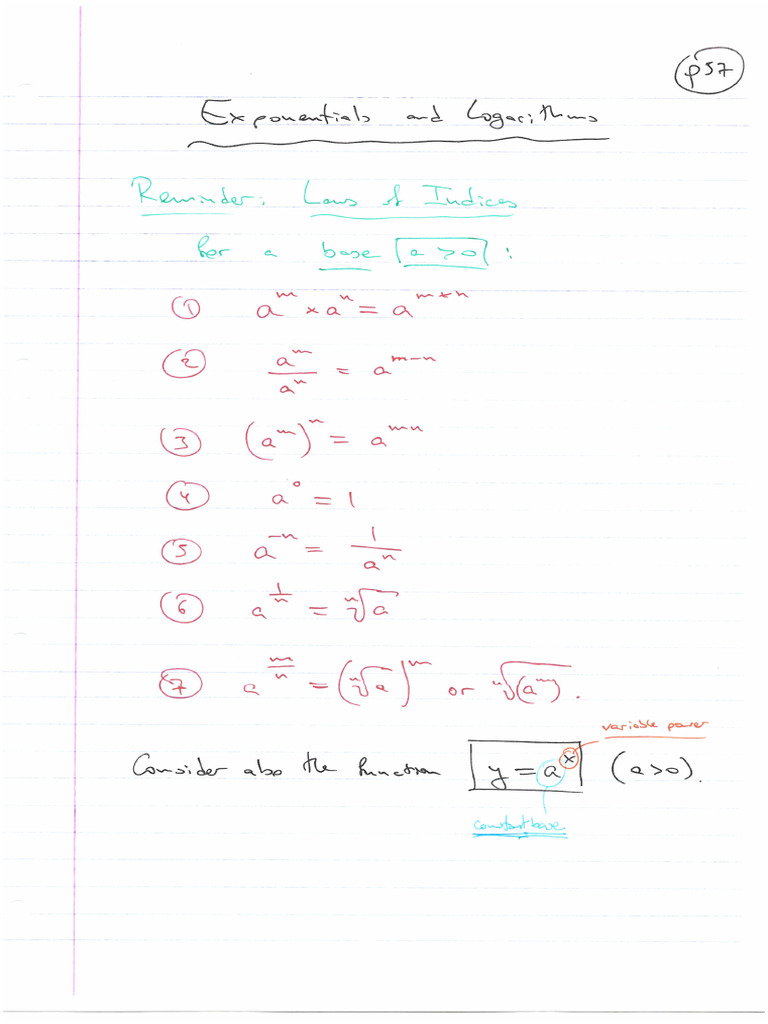 p57
Exponentials and Logarithms
Reminder: Laws of Indices
for a base a > 0 :
① a^m × a^n = a^(m+n)
② a^m / a^n = a^(m-n)
③ (a^m)^n = a^(mn)
④ a^0 = 1
⑤ a^(-n) = 1 / a^n
⑥ a^(1/n) = ⁿ√a
⑦ a^(m/n) = (ⁿ√a)^m or ⁿ√(a^m).
variable power
Consider also the function y = a^x (a>0).
constant base